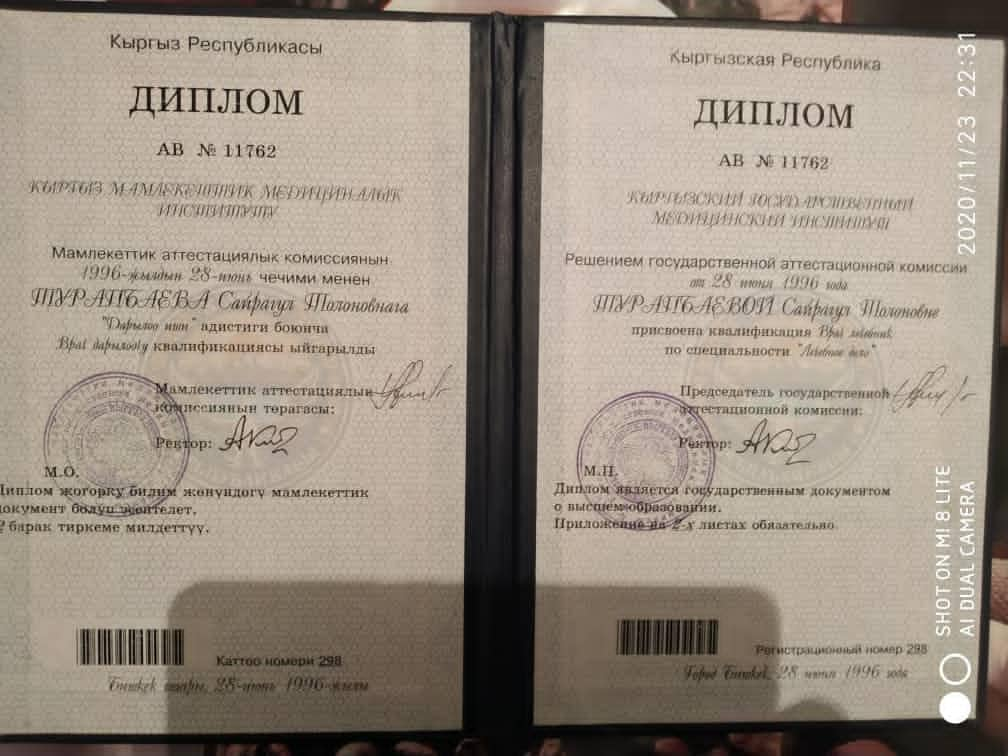 Кыргыз Республикасы
ДИПЛОМ
АВ № 11762
КЫРГЫЗ МАМЛЕКЕТТИК МЕДИЦИНАЛЫК
ИНСТИТУТУ
Мамлекеттик аттестациялык комиссиянын
1996-жылдын 28-июнь чечими менен
ТУРАПБАЕВА Сайрагул Толоновнага
"Дарылоо иши" адистиги боюнча
Врач дарылоочу квалификациясы ыйгарылды
Мамлекеттик аттестациялык
комиссиянын төрагасы:
Ректор:
М.О.
Диплом жогорку билим жөнүндөгү мамлекеттик
документ болуп эсептелет.
2 барак тиркеме милдеттүү.
Каттоо номери 298
Бишкек шаары, 28-июнь 1996-жылы
Кыргызская Республика
ДИПЛОМ
АВ № 11762
КЫРГЫЗСКИЙ ГОСУДАРСТВЕННЫЙ
МЕДИЦИНСКИЙ ИНСТИТУТ
Решением государственной аттестационной комиссии
от 28 июня 1996 года
ТУРАПБАЕВОЙ Сайрагул Толоновне
присвоена квалификация Врач лечебник
по специальности "Лечебное дело"
Председатель государственной
аттестационной комиссии:
Ректор:
М.П.
Диплом является государственным документом
о высшем образовании.
Приложение на 2-х листах обязательно.
Регистрационный номер 298
Город Бишкек, 28 июня 1996 года
2020/11/23 22:31
SHOT ON MI 8 LITE
AI DUAL CAMERA